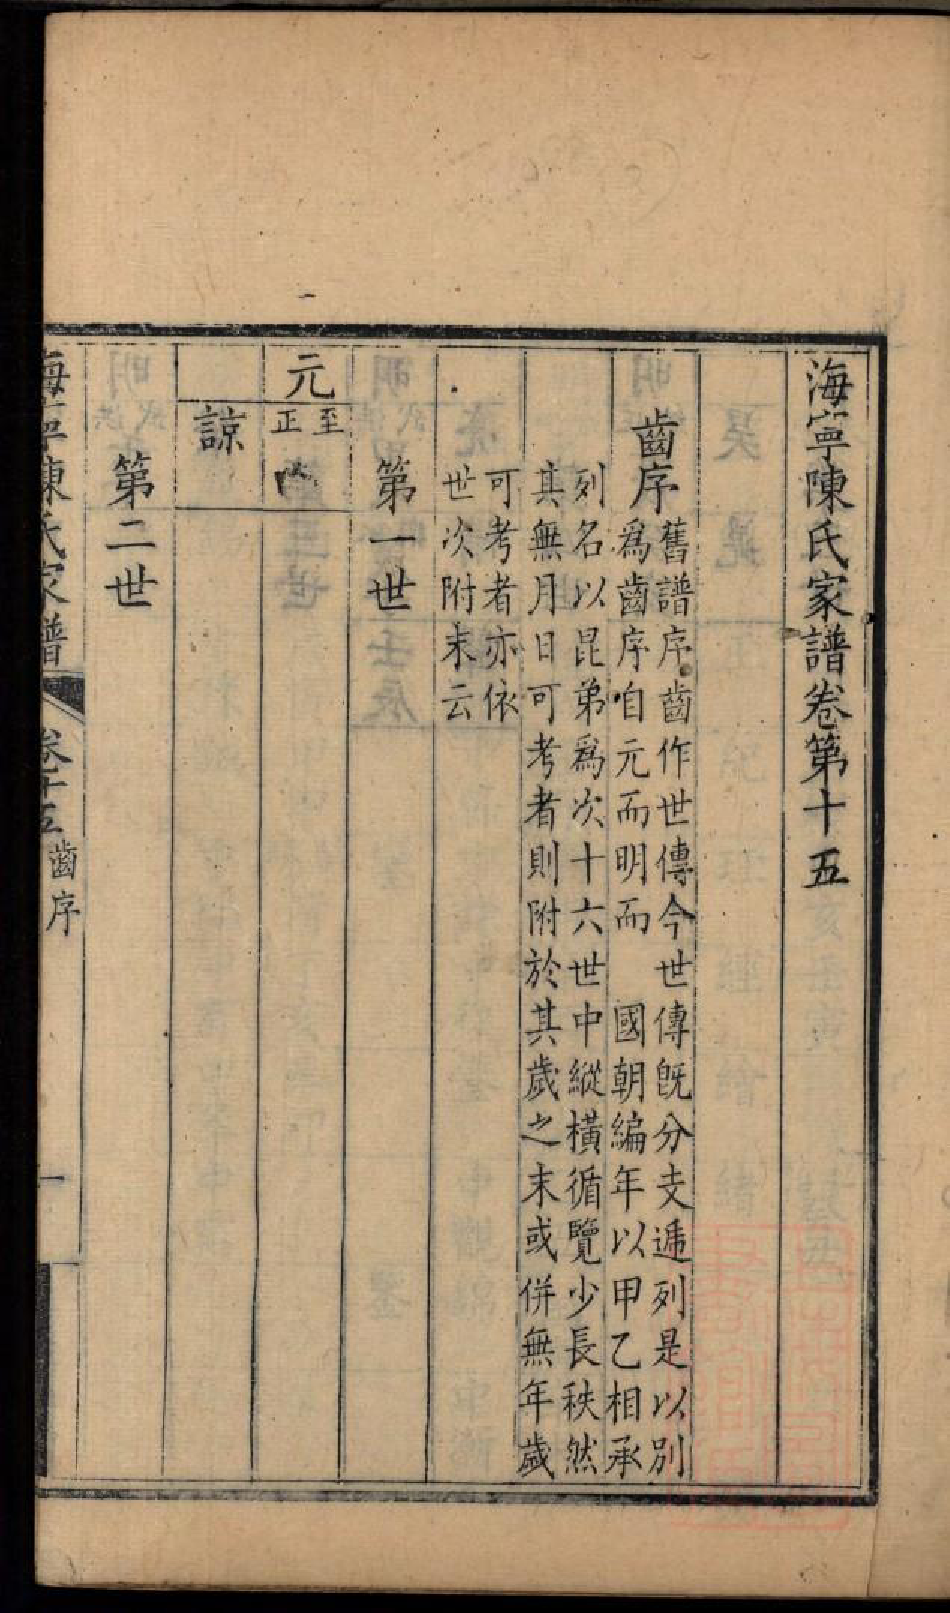 海寧陳氏家譜卷第十五
齒序
舊譜序齒作世傳今世傳旣分支遞列是以別
爲齒序自元而明而　國朝編年以甲乙相承
列名以昆弟爲次十六世中縱橫循覽少長秩然
其無月日可考者則附於其歲之末或併無年歲
可考者亦依
世次附末云
第一世
元
至
正
諒
第二世
海寧陳氏家譜
卷十五
齒序
一